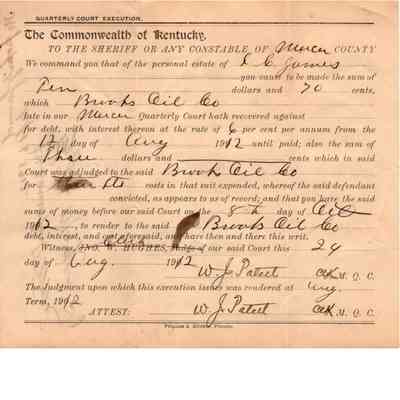 QUARTERLY COURT EXECUTION.
The Commonwealth of Kentucky,
TO THE SHERIFF OR ANY CONSTABLE OF Mercer COUNTY
We command you that of the personal estate of L C James
you cause to be made the sum of
Ten dollars and 70 cents,
which Brooks Oil Co
late in our Mercer Quarterly Court hath recovered against
for debt, with interest thereon at the rate of 6 per cent per annum from the
12 day of Aug 1912 until paid; also the sum of
Three dollars and cents which in said
Court was adjudged to the said Brooks Oil Co
for costs in that suit expended, whereof the said defendant
convicted, as appears to us of record; and that you have the said
sums of money before our said Court on the 8th day of Oct
1912, to render to the said Brooks Oil Co
debt, interest, and cost aforesaid, and have then and there this writ.
Witness, JNO. W. HUGHES, Judge of our said Court this 24
day of Aug. 1912
W. J. Patset Clk M. Q. C.
The Judgment upon which this execution issues was rendered at Aug.
Term, 1912
ATTEST: W. J. Patset Clk M. Q. C.